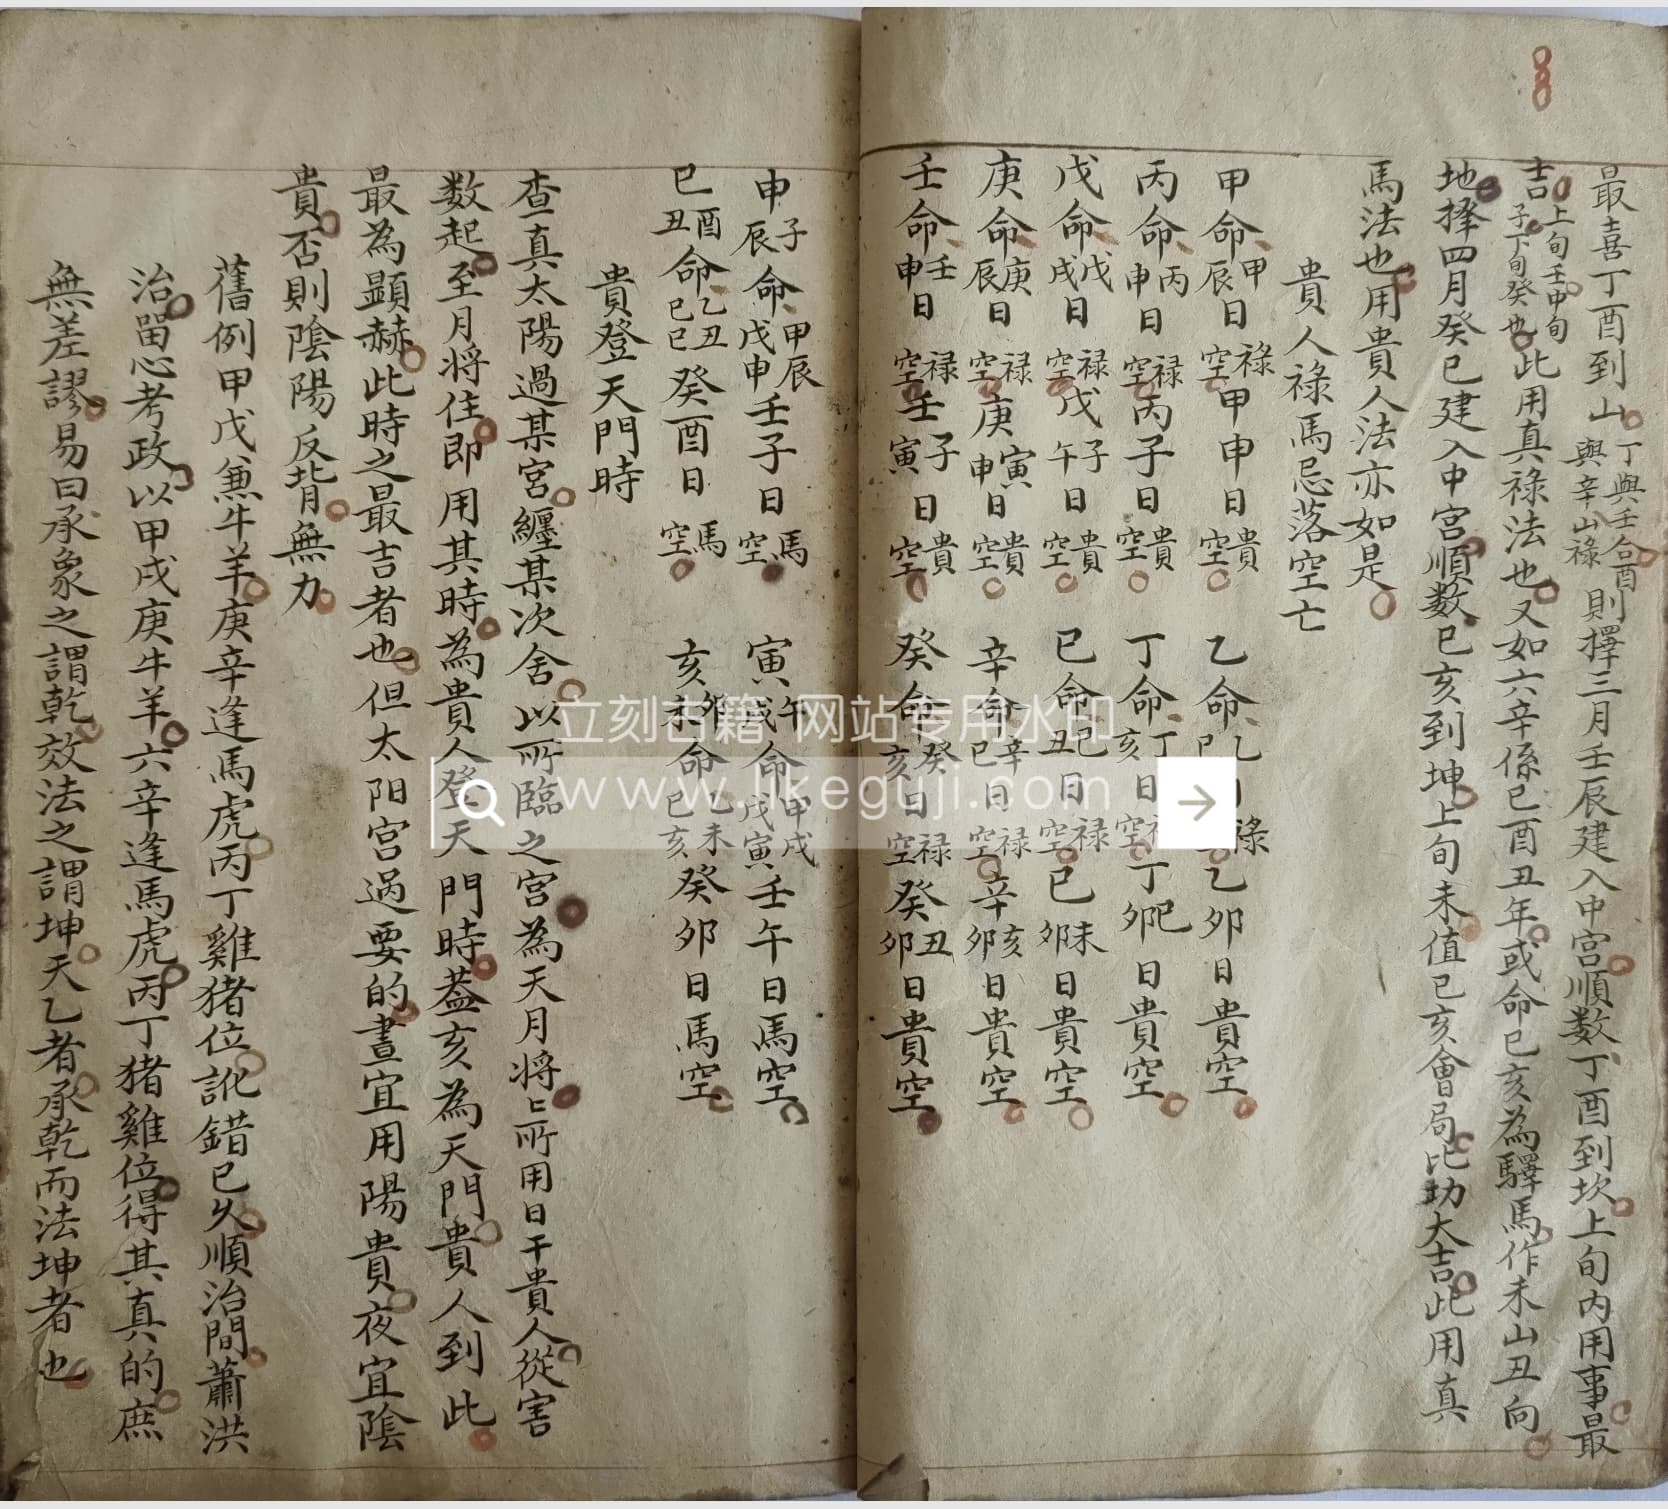 最喜丁酉到山丁與壬合與辛山祿酉則擇三月壬辰建入中宮順数丁酉到坎上旬内用事最
吉上旬壬申旬子下旬癸也此用真祿法也又如六辛係巳酉丑年或命巳亥為驛馬作未山丑向
地擇四月癸巳建入中宮順数巳亥到坤上旬未值巳亥會局比助大吉此用真
馬法也用貴人法亦如是
貴人祿馬忌落空亡
甲命甲辰日祿空甲申日貴空 乙命乙日祿乙卯日貴空
丙命丙申日祿空丙子日貴空 丁命丁亥日空丁巳卯日貴空
戊命戊戌日祿空戊子午日貴空 己命己丑日祿空己未卯日貴空
庚命庚辰日祿空庚寅申日貴空 辛命辛巳日祿空辛亥卯日貴空
壬命壬申日祿空壬子寅日貴空 癸命癸亥日祿空癸丑卯日貴空
申子辰命甲辰戊申壬子日馬空 寅午戌命甲戌戊寅壬午日馬空
巳酉丑命乙丑己巳癸酉日馬空 亥卯未命乙未己亥癸卯日馬空
貴登天門時
查真太陽過某宮纏某次舍以所臨之宮為天月将上所用日干貴人從害
数起至月将住即用其時為貴人登天門時蓋亥為天門貴人到此
最為顯赫此時之最吉者也但太阳宮過要的晝宜用陽貴夜宜陰
貴否則陰陽反背無力
舊例甲戊兼牛羊庚辛逢馬虎丙丁雞猪位訛錯已久順治間蕭洪
治畱心考政以甲戌庚牛羊六辛逢馬虎丙丁猪雞位得其真的庶
無差謬易曰承象之謂乾效法之謂坤天乙者承乾而法坤者也
立刻古籍 网站专用水印
www.lkeguji.com